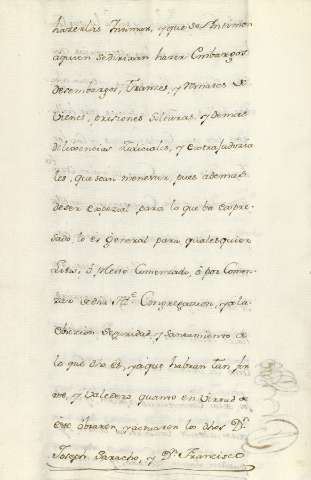 hazerlas Intimar, y que se Intimen
aquien se dirixan hazer Embargos
desembargos, Trances, y Remates de
vienes, prisiones Solturas, y demas
Dilixencias Judiciales, y extrajudicia
les, que sean menester, pues ademas
deser especial para lo que ba expre
sado, lo es General para qualesquier
Lite, ô Pleito Comenzado, ô por Comen
zar de dha Congregacion, y a la
eviccion Seguridad, y Saneamiento de
lo que dho es, y a que habran tan fir
me, y Valedero, quanto en virtud de
este obraren, y actuaren los dhos Dn
Joseph Saracho, y Dn Francisco